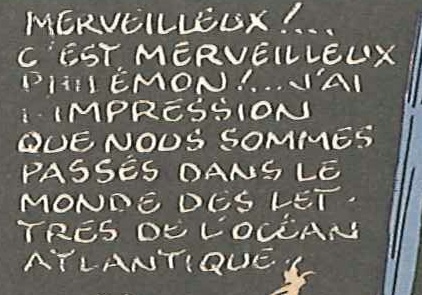 MERVEILLEUX !...
C'EST MERVEILLEUX
PHILÉMON !... J'AI
L'IMPRESSION
QUE NOUS SOMMES
PASSÉS DANS LE
MONDE DES LET-
TRES DE L'OCÉAN
ATLANTIQUE.